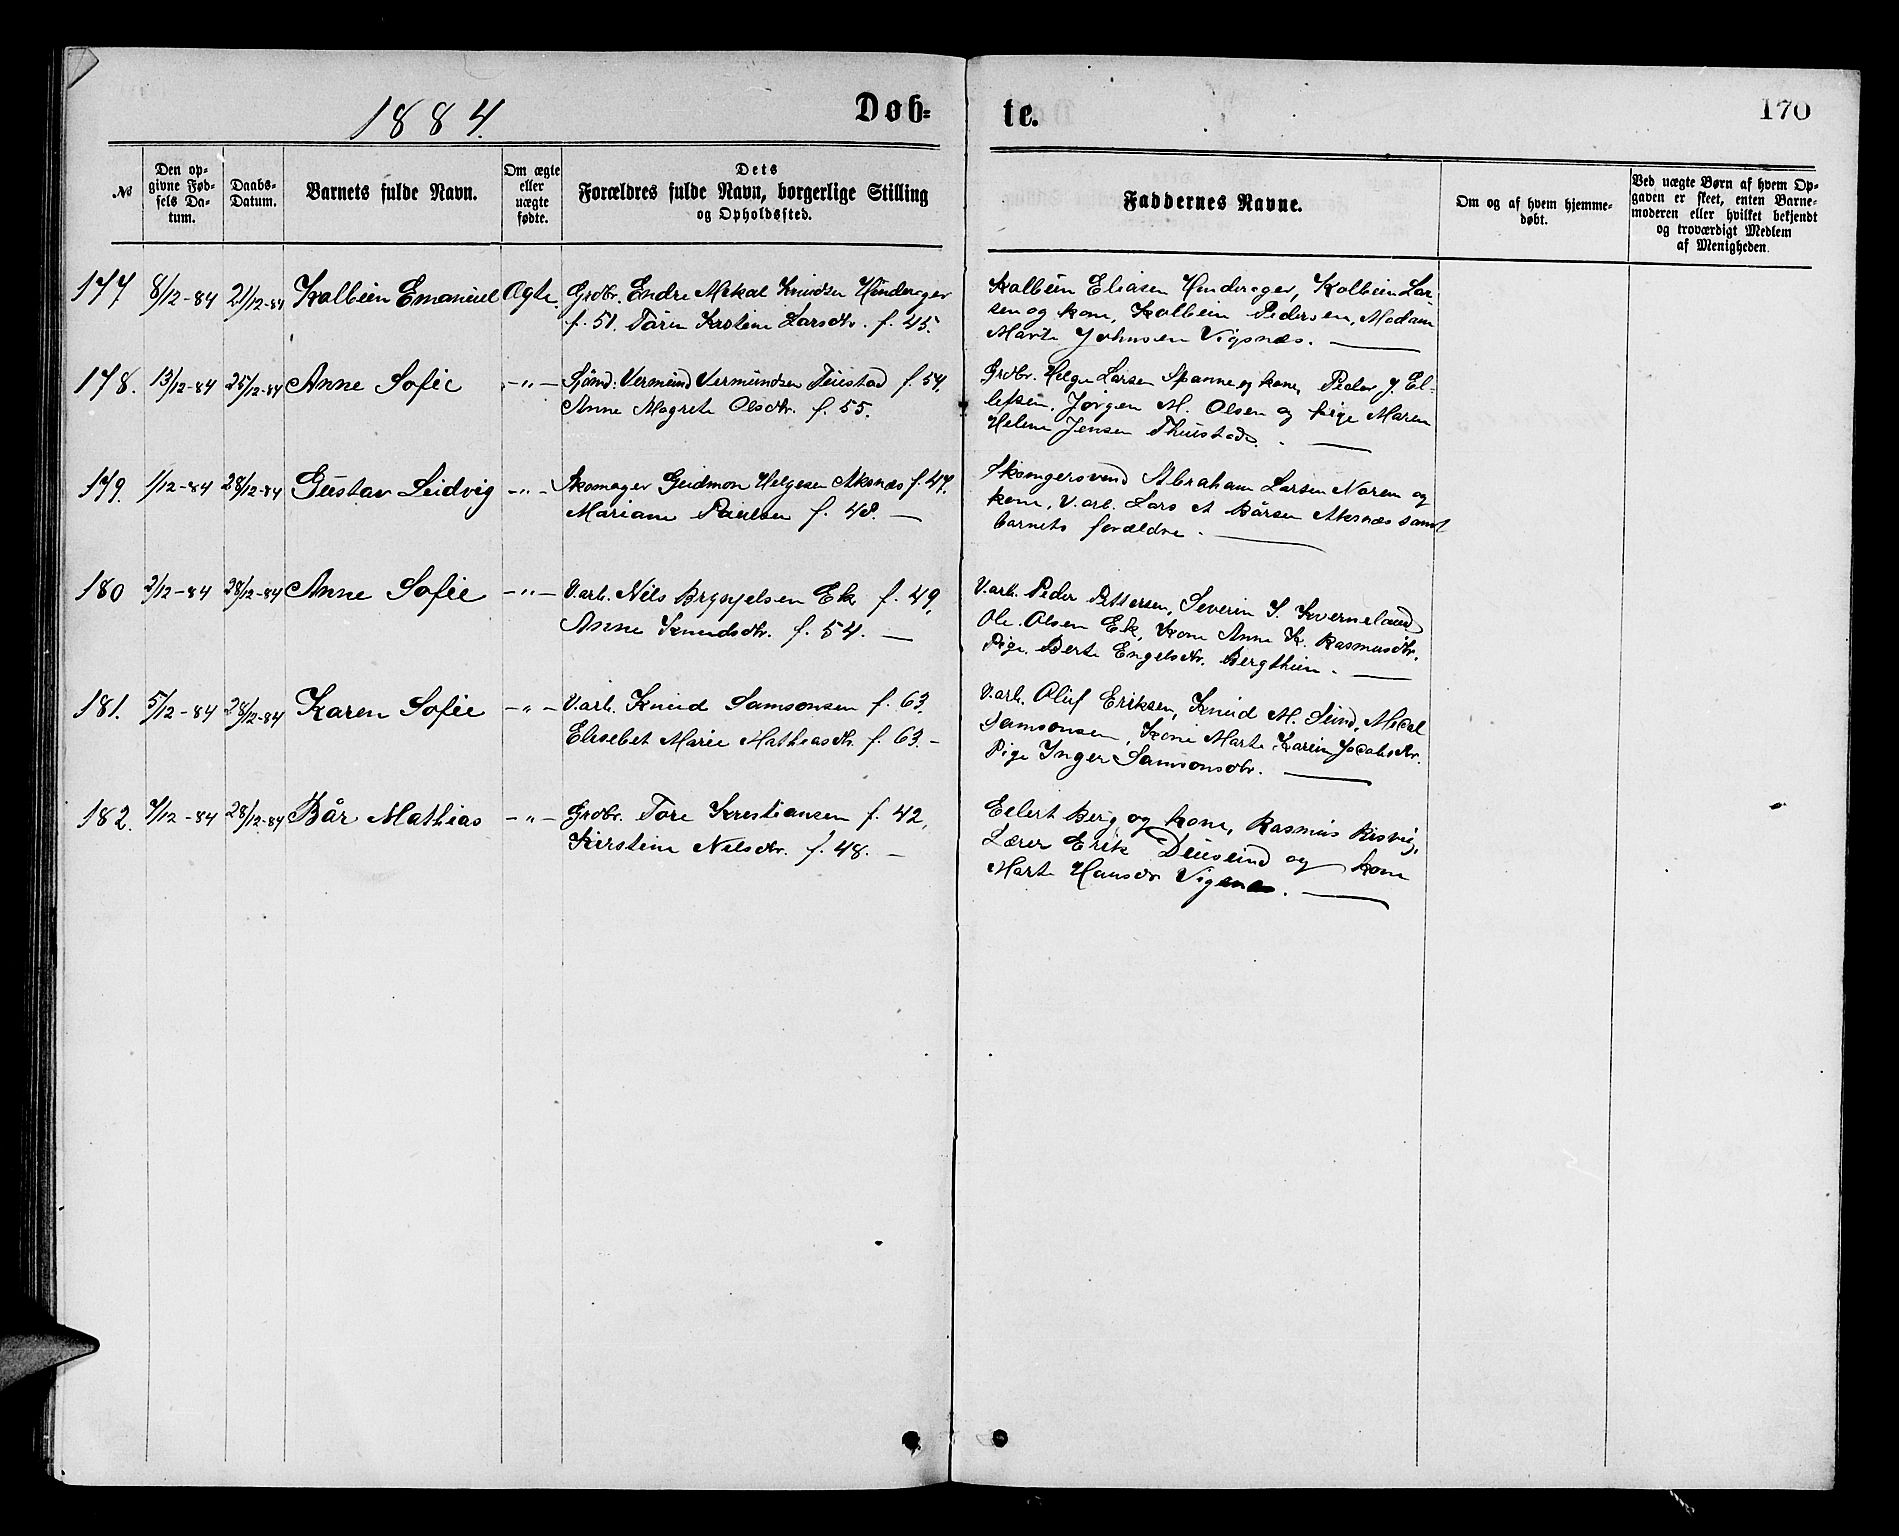 1884.
Døb-
te.
170
№
Den op-
givne Fød-
sels Da-
tum.
Daabs-
Datum.
Barnets fulde Navn.
Om ægte
eller
uægte
fødte.
Dets
Forældres fulde Navn, borgerlige Stilling
og Opholdssted.
Faddernes Navne.
Om og af hvem hjemme-
døbt.
Ved uægte Børn af hvem Op-
gaven er skeet, enten Barne-
moderen eller hvilket bekjendt
og troværdigt Medlem
af Menigheden.
177 8/12-84 21/12-84 Kolbein Emanuel Ægte. Grdbr. Endre Mikal Knudsen Hinderager
f. 51. Tóru Krstine Larsdtr. f. 45.
Kolbein Eliasen Hinderager, Kolbein Lar-
sen og kone, Kolbein Pedersen, Madam
Marte Johnsen Vigsnæs.
178. 13/12-84 25/12-84 Anne Sofie -"- Sjömd. Vermund Vermundsen Tuestad f. 54,
Anne Magrete Olsdtr. f. 55.
Grdbr. Helge Larsen Spanne og kone, Peder J. El-
lefsen, Jörgen M. Olsen og pige Maren
Helene Jensen Thuestad.
179. 1/12-84 28/12-84 Gustav Ludvig -"- Skomager Gudmon Helgesen Aksnæs f. 47.
Mariane Paulsen f. 48.
Skomgersvend Abraham Larsen Noren og
kone, V.arb. Lars A Bårsen Aksnæs samt
barnets forældre.
180 2/12-84 28/12-84 Anne Sofie -"- V.arb. Nils Brynjelsen Ek f. 49,
Anne Knudsdtr. f. 54.
V.arb. Peder Pettersen, Severin S. Kverneland
Ole Olsen Ek, Kone Anne K. Rasmusdtr.
Pige Berte Engelsdtr. Bergthun.
181. 5/12-84 28/12-84 Karen Sofie -"- V.arb. Knud Samsonsen f. 63.
Elisebet Marie Mathiasdtr. f. 63.
V.arb. Oluf Eriksen, Knud M. Sund, Mikal
Samsonsen, Kone Marte Karine Jacobsdtr.
Pige Inger Samsonsdtr.
182. 7/12-84 28/12-84 Bår Mathias -"- Grdbr. Tore Kristiansen f. 42,
Kirstine Nilsdtr. f. 48.
Eilert Berg og kone, Rasmus Risvig,
Lærer Erik Deusund og kone
Marte Hansdtr